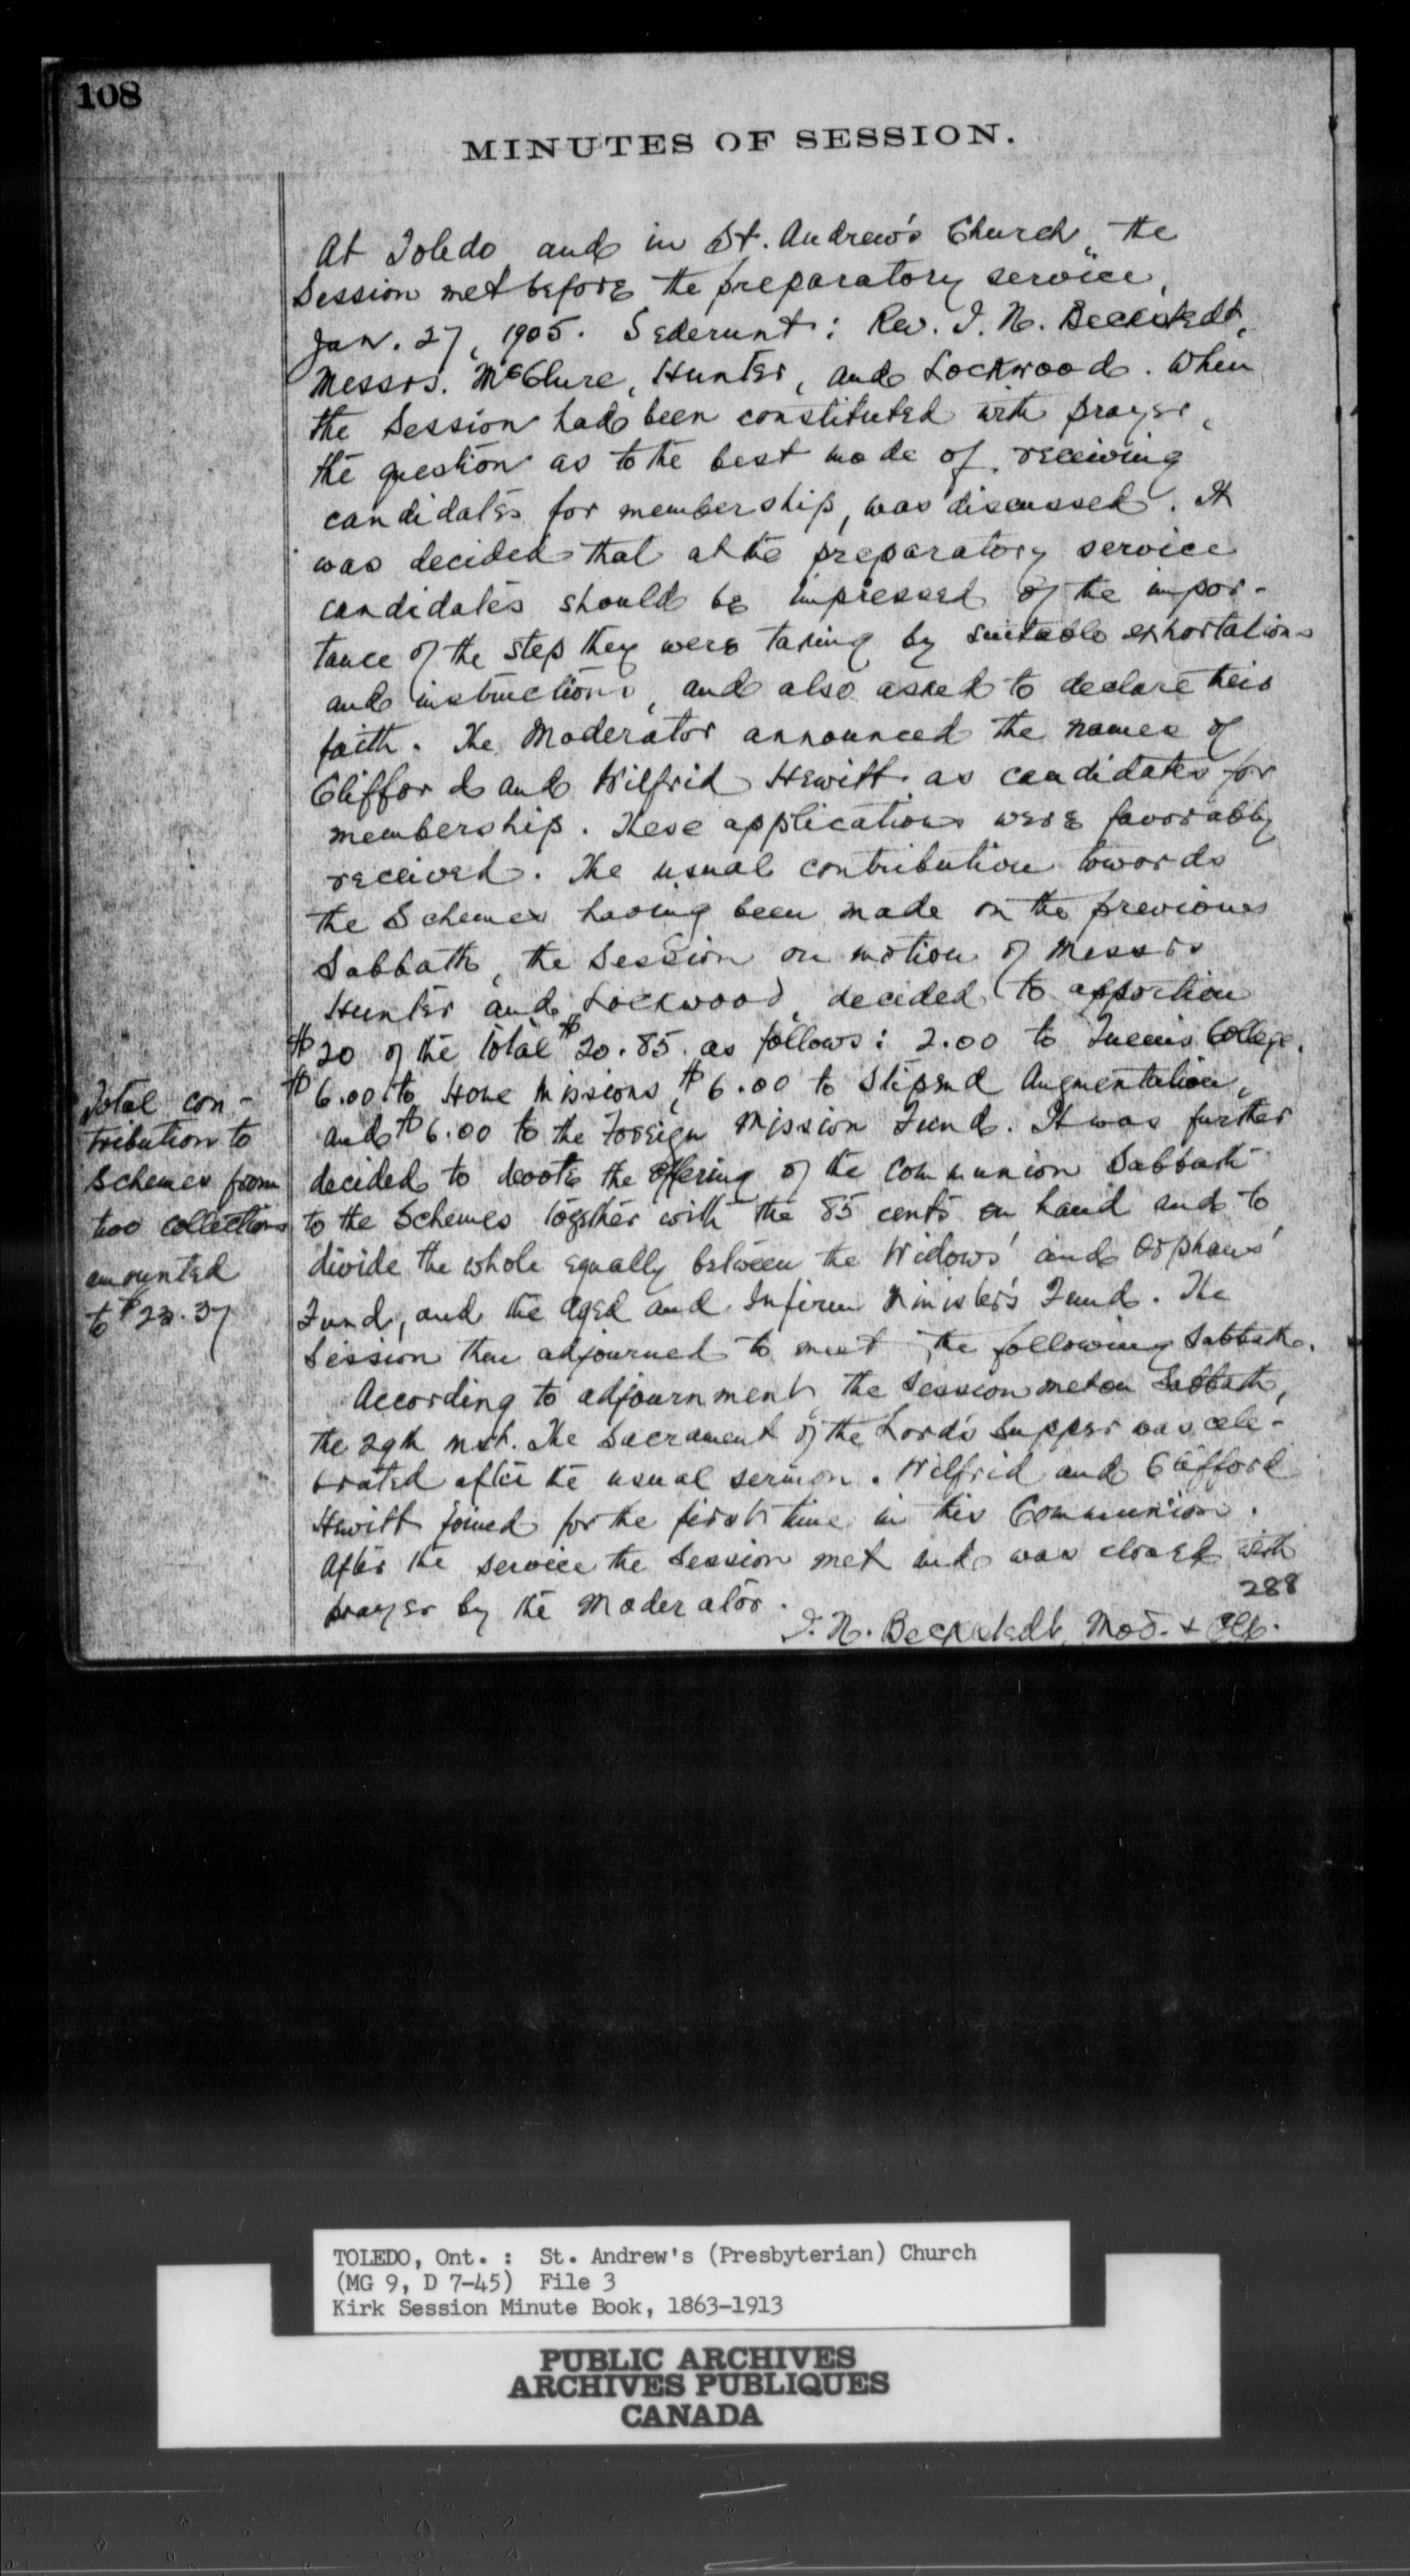 108
MINUTES OF SESSION.
At Toledo and in St. Andrew's Church, the
Session met before the preparatory service,
Jan. 27, 1905. Sederunt: Rev. I. N. Beckstedt,
Messrs. McClure, Hunter, and Lockwood. When
the Session had been constituted with prayer,
the question as to the best mode of receiving
candidates for membership, was discussed. It
was decided that at the preparatory service
candidates should be impressed of the impor-
tance of the step they were taking by suitable exhortations
and instructions, and also asked to declare their
faith. The Moderator announced the names of
Clifford and Wilfrid Hewitt as candidates for
membership. These applications were favorably
received. The usual contribution towards
the Schemes having been made on the previous
Sabbath, the Session on motion of Messrs
Hunter and Lockwood decided to apportion
$20 of the total $20.85 as follows: 2.00 to Queen's College,
$6.00 to Home Missions, $6.00 to Stipend Augmentation,
and $6.00 to the Foreign Mission Fund. It was further
decided to devote the offering of the Communion Sabbath
to the Schemes together with the 85 cents on hand and to
divide the whole equally between the Widows' and Orphans'
Fund, and the Aged and Infirm Minister's Fund. The
Session then adjourned to meet the following Sabbath.
Total con-
tribution to
Schemes from
two collections
amounted
to $23.37
According to adjournment, the Session met on Sabbath,
the 29th inst. The Sacrament of the Lord's Supper was cele-
brated after the usual sermon. Wilfrid and Clifford
Hewitt joined for the first time in this Communion.
After the service the Session met and was closed with
prayer by the Moderator.
288
I. N. Beckstedt, Mod. & Clk.
TOLEDO, Ont. : St. Andrew's (Presbyterian) Church
(MG 9, D 7-45) File 3
Kirk Session Minute Book, 1863-1913
PUBLIC ARCHIVES
ARCHIVES PUBLIQUES
CANADA